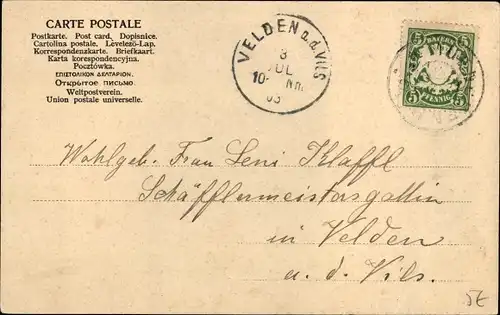 CARTE POSTALE
Postkarte. Post card. Dopisnice.
Cartolina postale. Levelező-Lap.
Korrespondenzkarte. Briefkaart.
Karta korespondencyjna.
Pocztówka.
ΕΠΙΣΤΟΛΙΚΟΝ ΔΕΛΤΑΡΙΟΝ.
Открытое письмо.
Weltpostverein.
Union postale universelle.
VELDEN a.d. VILS
8
JUL
10- Nm.
03
BAYERN
5 5
PFENNIG
5 5
Wohlgeb. Frau Leni Klaffl
Schäfflermeistersgattin
in Velden
a. d. Vils.